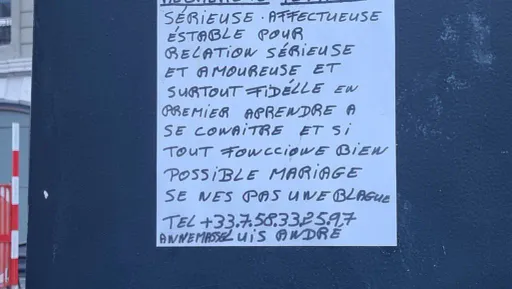 SÉRIEUSE. AFFECTUEUSE
ÉSTABLE POUR
RELATION SÉRIEUSE
ET AMOUREUSE ET
SURTOUT FIDÉLLE EN
PREMIER APRENDRE A
SE CONAITRE ET SI
TOUT FONCCIONE BIEN
POSSIBLE MARIAGE
SE NES PAS UNE BLAGUE
TEL +33.7.58.33.25.97
ANNEMASSE LUIS ANDRÉ